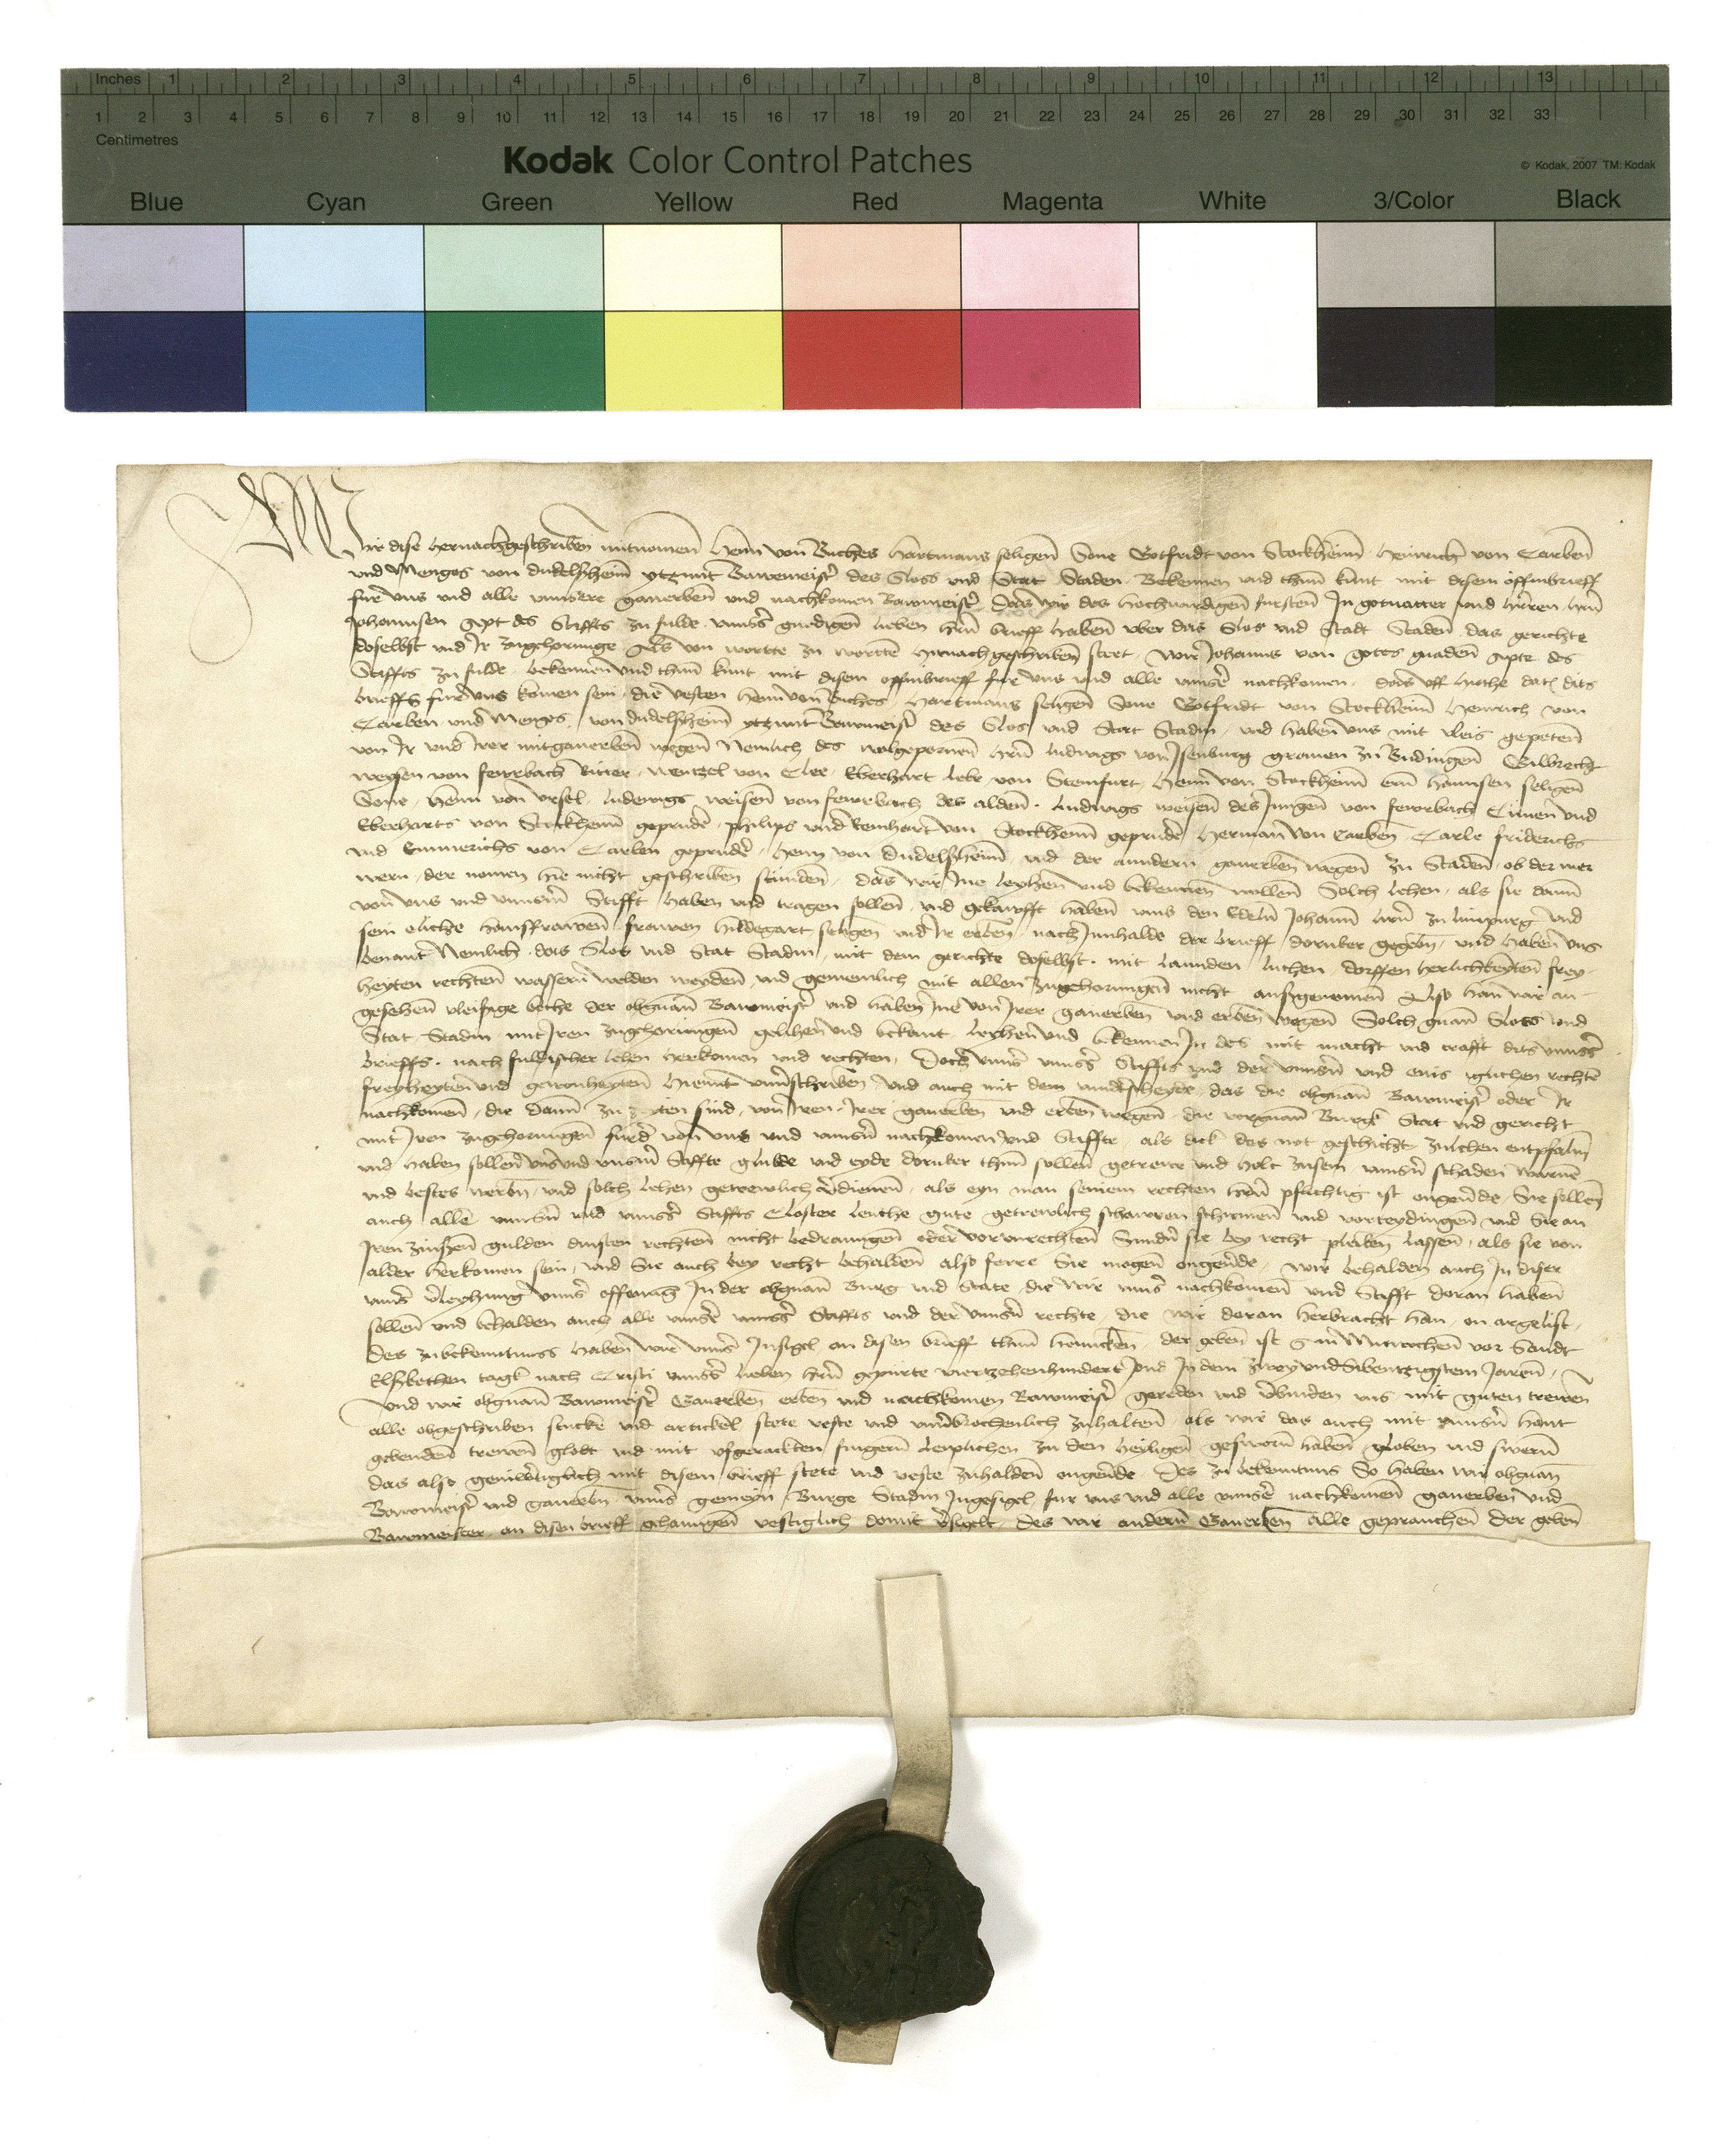 Inches 1 2 3 4 5 6 7 8 9 10 11 12 13
1 2 3 4 5 6 7 8 9 10 11 12 13 14 15 16 17 18 19 20 21 22 23 24 25 26 27 28 29 30 31 32 33
Centimetres
Kodak Color Control Patches
© Kodak, 2007 TM: Kodak
Blue Cyan Green Yellow Red Magenta White 3/Color Black
Wir dise hernachgeschriben mitnomen Henn von Buches Hartmans seligen Sone Gotfridt von Stockheim Heinrich von Carben
und Menges von dudelsheim ytzunt Bawemeister des Sloss und Stat Staden Bekennen und thun kunt mit disem offinbrieff
fur uns und alle unnsere ganerben und nachkomen Bawmeister Das wir des hochwirdigen fursten In gotvatter und herren hern
Johannsen Apt des Stiffts zu fulde unnsers gnedigen lieben hern brieff haben uber das Slos und Stadt Staden das gerichte
doselbst und Ir zugehorunge als von wortte zu wortte hirnach geschriben stet Wir Johanns von gotes gnaden Apte des
Stiffts zu fulde bekennen und thun kunt mit disem offinbrieff fur uns und alle unnser nachkomen das uff huthe dat dits
brieffs fur uns komen sein die vesten Henn von Buches Hartmans seligen Sone Gotfridt von Stockheim Henrich von
Carben und Menges von dudelsheim ytzunt Bawmeister des Slos und Stat Stadin und haben uns mit vleis gepeten
von Ir und Irer mitganerben wegen Nemlich des wolgepornen hern ludwigs von Isenburg graven zu Budingen Gilbrecht
weysen von fewrbach Ritter Wentzel von Clee Eberhart lebe von Steinfurt Henn von Stockheim ern hannsen seligen
Sone Henn von Ursel ludewigs weisen von fewrbach des alden ludwigs weisen des Jungen von fewrbach und
Eberharts von Stockheim gepruder philips und Reinhart von Stockheim gepruder Herman von Carben Carle friderichs
und Emmerichs von Carben gepruder Henn von dudelsheim und der anndern ganerben wegen zu Staden ob der mer
wern der nomen hie nicht geschriben stunden das wir Ine leyhen und bekennen wollen Solch lehen als sie dann
von uns und unnserm Stifft haben und tragen sollen und gekaufft haben umb den Edeln Johann hern zu limpurg und
sein eliche haussfrawen frawen hildegart seligen und Ir erben nach Innhalde der brieff doruber gegeben und haben uns
benant Nemlich das Slos und Stat Stadin mit dem gerichte doselbst mit lannden luthen dorffen herlichkeyten frey
heyten rechten wassern welden weyden und gemeinlich mit allen zugehorungen nicht aussgenommen Also han wir an
gesehen vleisige bethe der obgnan Bawmeister und haben Ine von Irer ganerben und erben wegen Solch gnan Sloss und
Stat Stadin mit Iren zugehorungen gelihen und bekant leyhen und bekennen In des mit macht und crafft dits unnsers
brieffs nach fuldischer lehen herkomen und rechten Doch unns unnsers Stiffts und der unnsern und eins iglichen rechten
freyheyten und gewonheyten hiemit unverschriben und auch mit dem undescheyde das die obgnan Bawmeister oder Ir
nachkomen die dann zu zyten sind von Iren Irer ganerben und erben wegen die vorgnan Burgk Stat und gericht
mit Iren zugehorungen furder von uns und unnsern nachkomen und Stiffte als dick das not geschicht zulehen entpfahen
und haben sollen uns und unserm Stiffte glubde und eyde doruber thun sollen getrewe und holt zusein unnsern schaden warnen
und bestes werben und solch lehen getrewlich verdienen als eyn man seinem rechten hern pflichtig ist ongeverde Sie sollen
auch alle unnsern und unnsers Stiffts Closter leuthe gute getrewlich schawren schirmen und verteydingen und Sie an
Iren zinssen gulden dinsten rechten nicht bedrangen oder verunrechten Sundern sie bey recht pleiben lassen als sie von
alder herkomen sein und Sie auch bey recht behalden also ferre Sie mogen ongeverde Wir behalden auch In diser
unnser verleyhung unns offnung In der obgnan Burg und State die wir unns nachkomen und Stifft doran haben
sollen und behalden auch alle unnser unnsers Stiffts und der unnsern rechte die wir doran herbracht han on argelist
Des zubekentnuss haben wir unnser Insigel an disen brieff thun hencken der geben ist am Mitwochen vor Sandt
Elssbethen tagk nach Cristi unnsers lieben hern gepurte vierzehenhundert und In dem zwey und Sibentzigstem Jaren
Und wir obgnan Bawmeister Ganerben erben und nachkomen Bawmeister gereden und verbinden uns mit guten trewen
alle obgeschriben stucke und artickel stete veste und unverbrochenlich zuhalten als wir das auch mit unnsern hant
gebenden trewen globt und mit ufgerackten fingern leyplichen zu den heyligen gesworn haben globen und swern
das also genwertiglich mit disem brieff stete und veste zuhalden ongeverde Des zu bekentnus So haben wir obgnan
Bawmeister und ganerben unns gemeyn Burge Stadin Ingesigel fur uns und alle unnser nachkomen ganerben und
Bawmeister an disen brieff gehangen vestiglich domit versigelt des wir andern Ganerben alle geprauchen Der geben